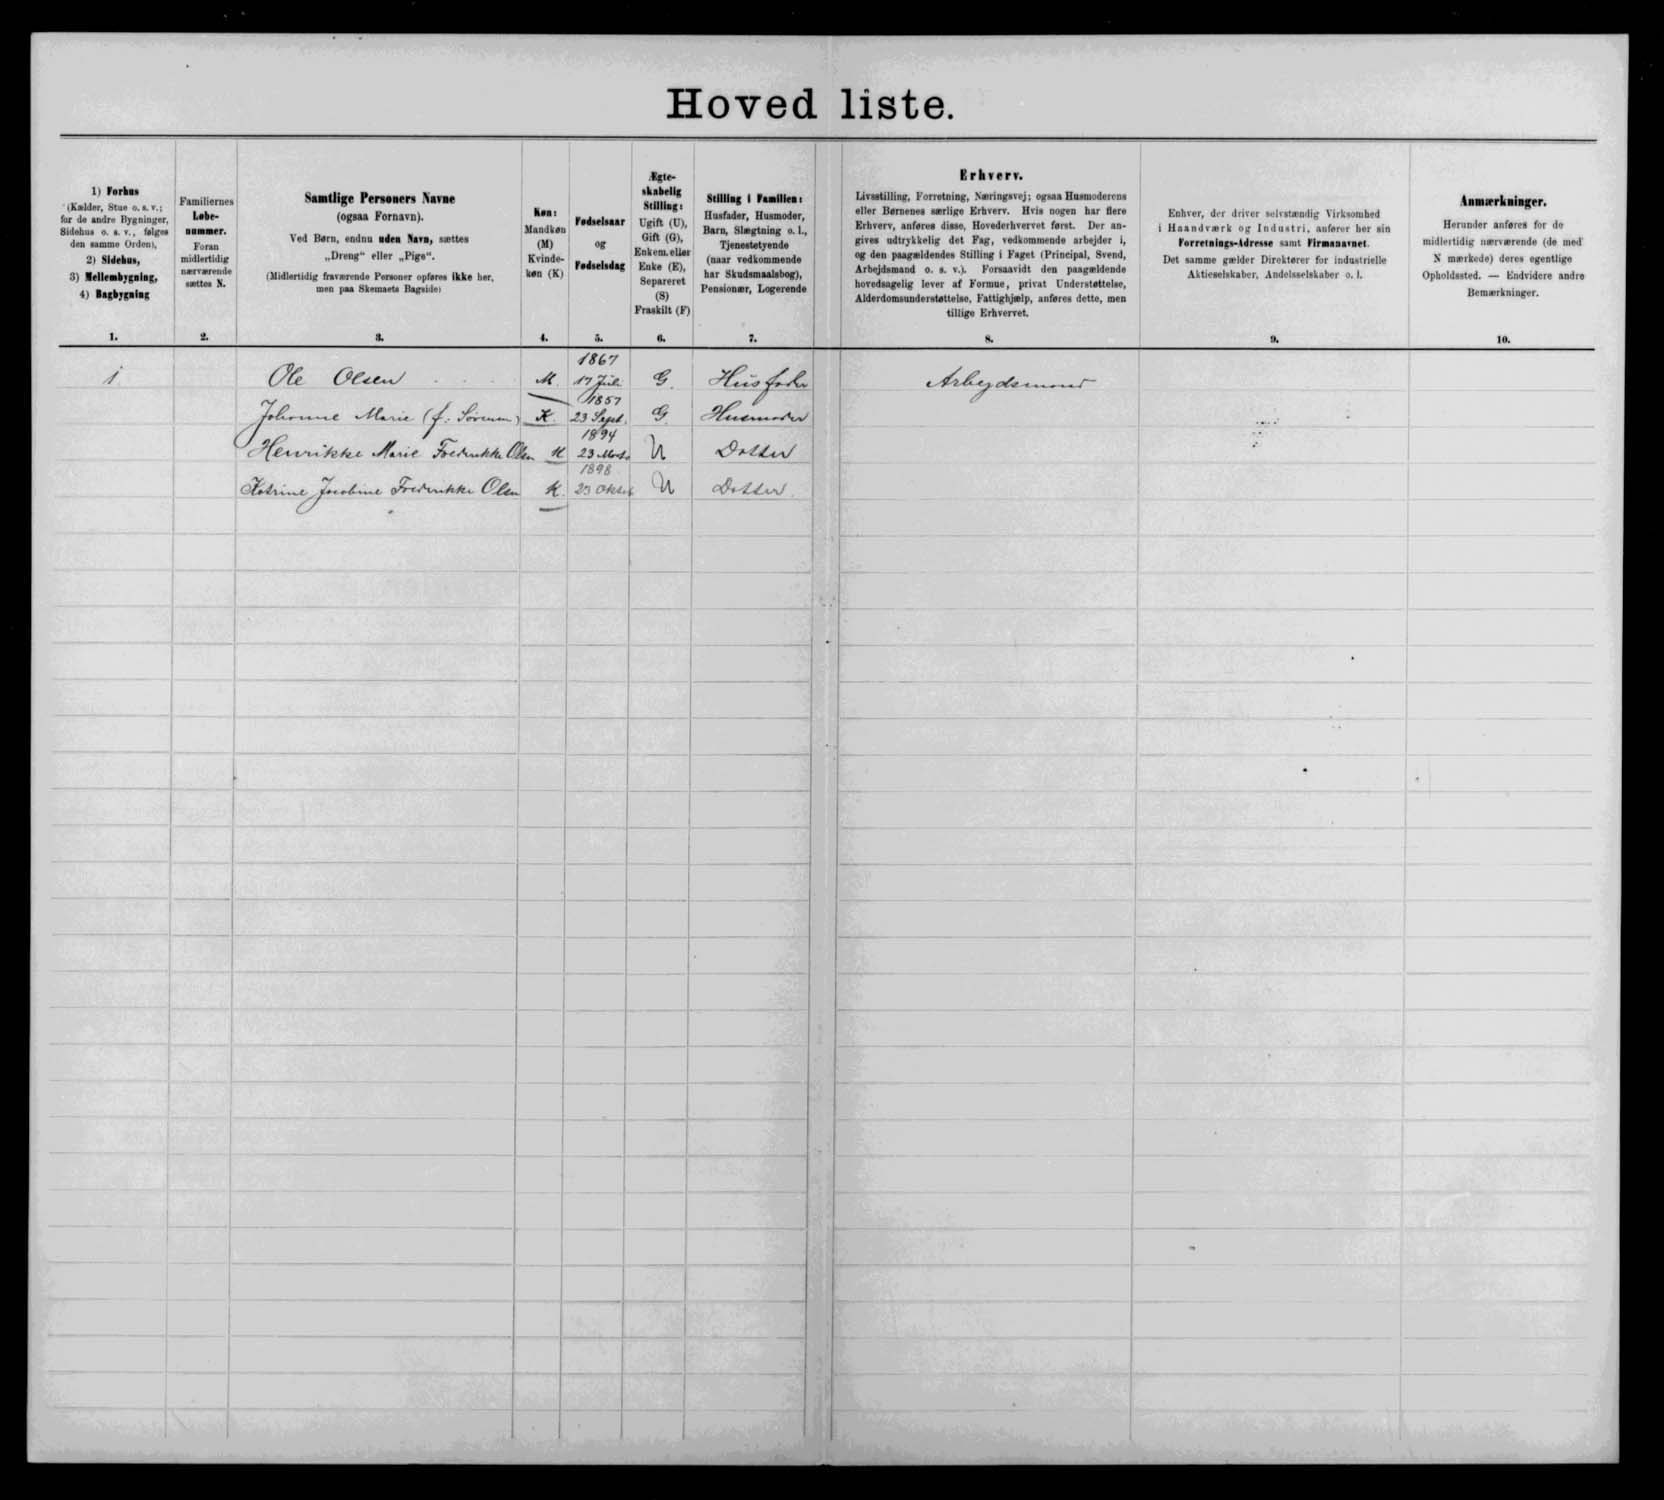 Hoved liste.
1) Forhus
(Kælder, Stue o. s. v.;
for de andre Bygninger,
Sidehus o. s. v., følges
den samme Orden),
2) Sidehus,
3) Mellembygning,
4) Bagbygning
1.
Familiernes
Løbe-
nummer.
Foran
midlertidig
nærværende
sættes N.
2.
Samtlige Personers Navne
(ogsaa Fornavn).
Ved Børn, endnu uden Navn, sættes
„Dreng“ eller „Pige“.
(Midlertidig fraværende Personer opføres ikke her,
men paa Skemaets Bagside)
3.
Køn:
Mandkøn
(M)
Kvinde-
køn (K)
4.
Fødselsaar
og
Fødselsdag
5.
Ægte-
skabelig
Stilling:
Ugift (U),
Gift (G),
Enkem. eller
Enke (E),
Separeret
(S)
Fraskilt (F)
6.
Stilling i Familien:
Husfader, Husmoder,
Barn, Slægtning o. l.,
Tjenestetyende
(naar vedkommende
har Skudsmaalsbog),
Pensionær, Logerende
7.
Erhverv.
Livsstilling, Forretning, Næringsvej; ogsaa Husmoderens
eller Børnenes særlige Erhverv. Hvis nogen har flere
Erhverv, anføres disse, Hovederhvervet først. Der an-
gives udtrykkelig det Fag, vedkommende arbejder i,
og den paagældendes Stilling i Faget (Principal, Svend,
Arbejdsmand o. s. v.). Forsaavidt den paagældende
hovedsagelig lever af Formue, privat Understøttelse,
Alderdomsunderstøttelse, Fattighjælp, anføres dette, men
tillige Erhvervet.
8.
Enhver, der driver selvstændig Virksomhed
i Haandværk og Industri, anfører her sin
Forretnings-Adresse samt Firmanavnet.
Det samme gælder Direktører for industrielle
Aktieselskaber, Andelsselskaber o. l.
9.
Anmærkninger.
Herunder anføres for de
midlertidig nærværende (de med
N mærkede) deres egentlige
Opholdssted. — Endvidere andre
Bemærkninger.
10.
1867
1 Ole Olsen M. 17 Juli G. Husfader Arbejdsmand
1857
Johanne Marie (f. Sørensen) K. 23 Sept. G. Husmoder
1894
Henrikke Marie Frederikke Olsen K 23 Marts U Datter
1898
Katrine Jacobine Frederikke Olsen K. 23 Oktob U Datter.